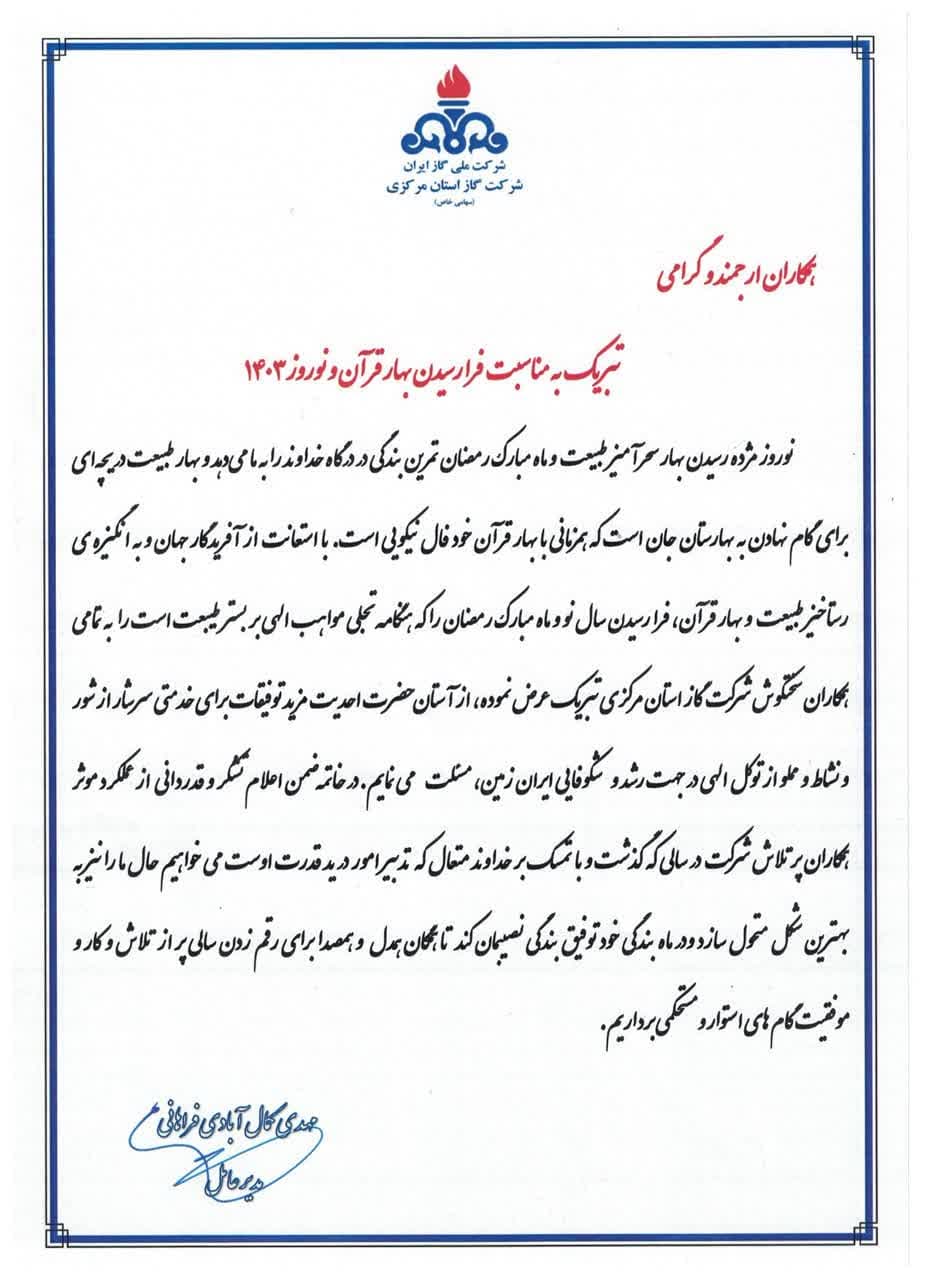 شرکت ملی گاز ایران
شرکت گاز استان مرکزی
(سهامی خاص)
همکاران ارجمند و گرامی
تبریک به مناسبت فرارسیدن بهار قرآن و نوروز ۱۴۰۳
نوروز مژده رسیدن بهار سحرآمیز طبیعت و ماه مبارک رمضان تمرین بندگی در درگاه خداوند را به ما می دهد و بهار طبیعت دریچه ای
برای گام نهادن به بهارستان جان است که همزمانی با بهار قرآن خود فال نیکویی است. با استعانت از آفریدگار جهان و به انگیزه ی
رستاخیز طبیعت و بهار قرآن، فرا رسیدن سال نو و ماه مبارک رمضان را که هنگامه تجلی مواهب الهی بر بستر طبیعت است را به تمامی
همکاران سختکوش شرکت گاز استان مرکزی تبریک عرض نموده، از آستان حضرت احدیت مزید توفیقات برای خدمتی سرشار از شور
و نشاط و مملو از توکل الهی در جهت رشد و شکوفایی ایران زمین، مسئلت می نمایم. در خاتمه ضمن اعلام تشکر و قدردانی از عملکرد موثر
همکاران پر تلاش شرکت در سالی که گذشت و با تمسک بر خداوند متعال که تدبیر امور در ید قدرت اوست می خواهیم حال ما را نیز به
بهترین شکل متحول سازد ودر ماه بندگی خود توفیق بندگی نصیبمان کند تا همگان همدل و همصدا برای رقم زدن سالی پر از تلاش و کار و
موفقیت گام های استوار و مستحکمی برداریم.
مهدی کمال آبادی فراهانی
مدیرعامل